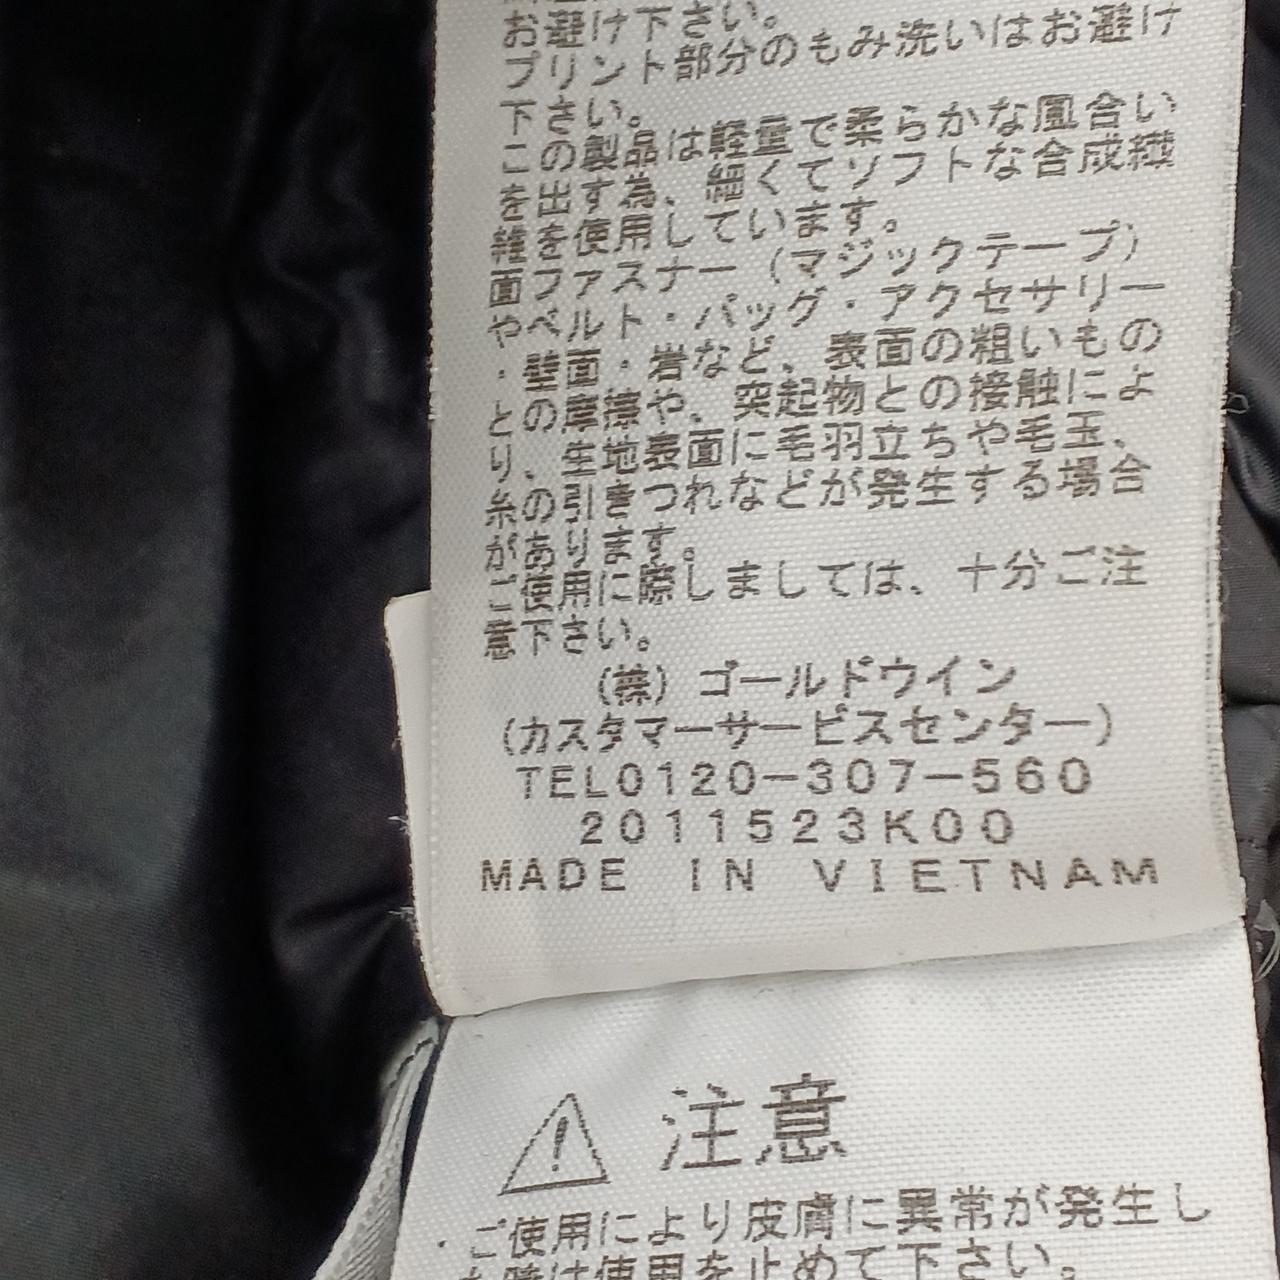 お避け下さい。
プリント部分のもみ洗いはお避け
下さい。
この製品は軽量で柔らかな風合い
を出す為、細くてソフトな合成繊
維を使用しています。
面ファスナー（マジックテープ）
やベルト・バッグ・アクセサリー
・壁面・岩など、表面の粗いもの
との摩擦や、突起物との接触によ
り、生地表面に毛羽立ちや毛玉、
糸の引きつれなどが発生する場合
があります。
ご使用に際しましては、十分ご注
意下さい。
（株）ゴールドウイン
（カスタマーサービスセンター）
TEL0120-307-560
2011523K00
MADE IN VIETNAM
注意
・ご使用により皮膚に異常が発生し
た時は使用を止めて下さい。